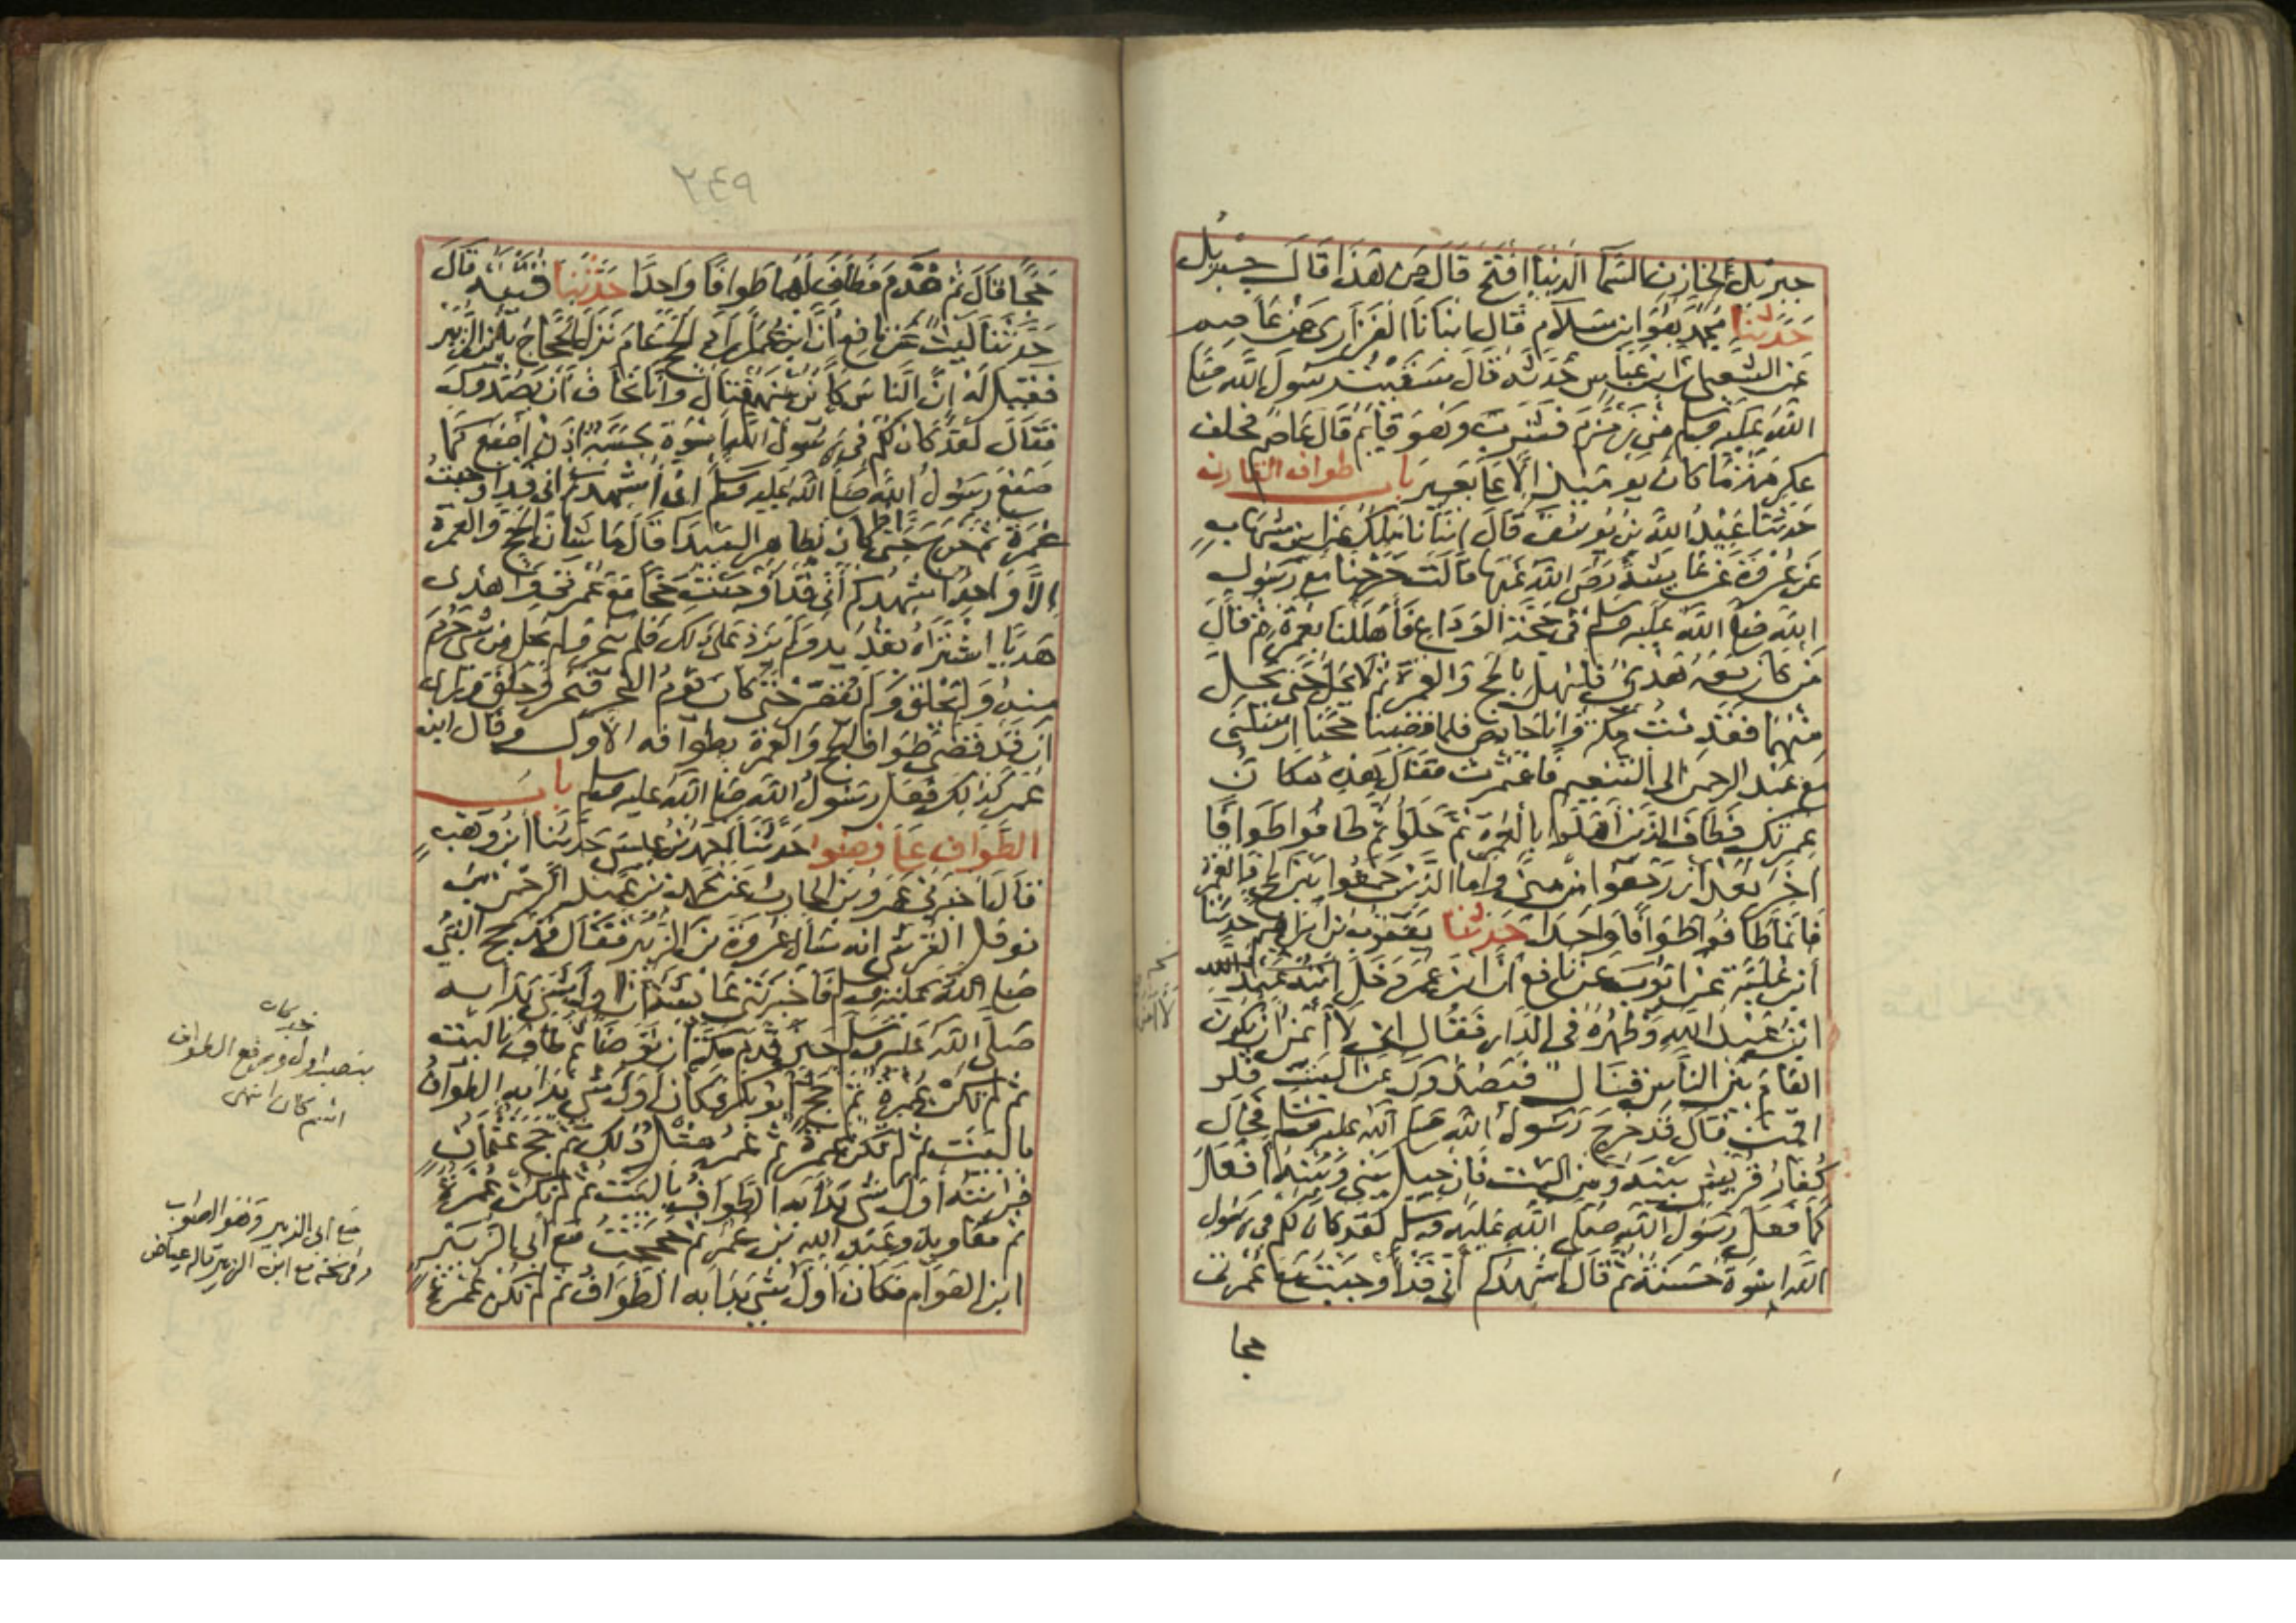 جبريل لخازن السما الدنيا افتح قال من هذا قال جبريل
حدثنا محمد هو ابن سلام قال انبانا الفزاري عن عاصم
عن الشعبي ان ابن عباس حدثه قال سقيت رسول الله صلى
الله عليه وسلم من زمزم فشرب وهو قائم قال عاصم فحلف
عكرمة ما كان يومئذ الا على بعير باب طواف القارن
حدثنا عبد الله بن يوسف قال انبانا ملك عن ابن شهاب
عن عروة عن عايشة رضي الله عنها قالت خرجنا مع رسول
الله صلى الله عليه وسلم في حجة الوداع فأهللنا بعمرة ثم قال
من كان معه هدي فليهل بالحج والعمرة ثم لا يحل حتى يحل
منهما فقدمت مكة وانا حايض فلما قضينا حجنا ارسلني
مع عبد الرحمن الى التنعيم فاعتمرت فقال هذه مكان
عمرتك فطاف الذين اهلوا بالعمرة ثم حلوا ثم طافوا طوافا
اخر بعد ان رجعوا من منى واما الذين جمعوا بين الحج والعمرة
فانما طافوا طوافا واحدا حدثنا يعقوب بن ابراهيم حدثنا
ابن علية عن ايوب عن نافع أن ابن عمر دخل ابنه عبد الله
ابن عبد الله وظهره في الدار فقال اني لا آمن ان يكون
العام بين الناس قتال فيصدوك عن البيت فلو
اقمت فقال قد خرج رسول الله صلى الله عليه وسلم فحال
كفار قريش بينه وبين البيت فان حيل بيني وبينه أفعل
كما فعل رسول الله صلى الله عليه وسلم لقد كان لكم في رسول
الله اسوة حسنة ثم قال اشهدكم أني قد أوجبت مع عمرتي
حجا
٢٤٩
حجا قال ثم قدم فطاف لهما طوافا واحدا حدثنا قتيبة قال
حدثنا ليث عن نافع أن ابن عمر اراد الحج عام نزل الحجاج بابن الزبير
فقيل له إن الناس كائن بينهم قتال وانا نخاف أن يصدوك
فقال لقد كان لكم في رسول الله اسوة حسنة اذن اصنع كما
صنع رسول الله صلى الله عليه وسلم اني أشهدكم أني قد أوجبت
عمرة ثم خرج حتى كان بظاهر البيدا قال ما شان الحج والعمرة
إلا واحد اشهدكم أني قد أوجبت حجا مع عمرتي وأهدى
هديا اشتراه بقديد ولم يزد على ذلك فلم ينحر ولم يحل من شي حرم
منه ولم يحلق ولم يقصر حتى كان يوم النحر فنحر وحلق وراى
أن قد قضى طواف الحج والعمرة بطوافه الاول وقال ابن
عمر كذلك فعل رسول الله صلى الله عليه وسلم باب
الطواف على وضوء حدثنا احمد بن عيسى حدثنا ابن وهب
قال اخبرني عمرو بن الحارث عن محمد بن عبد الرحمن بن
نوفل القرشي انه سأل عروة بن الزبير فقال قد حج النبي
صلى الله عليه وسلم فاخبرتني عايشة أن اول شي بدا به
حين قدم مكة أن توضا ثم طاف بالبيت
ثم لم تكن عمرة ثم حج أبو بكر فكان اول شي بدا به الطواف
بالبيت ثم لم تكن عمرة ثم عمر مثل ذلك ثم حج عثمان
فرايته أول شي بدأ به الطواف بالبيت ثم لم تكن عمرة
ثم معاوية وعبد الله بن عمر ثم حججت مع أبي الزبير
ابن العوام فكان اول شي بدا به الطواف ثم لم تكن عمرة
بنصب اول ورفع الطواف
اسم كان انتهى
مع ابي الزبير وهو الصواب
وفي نسخة مع ابن الزبير قاله عياض